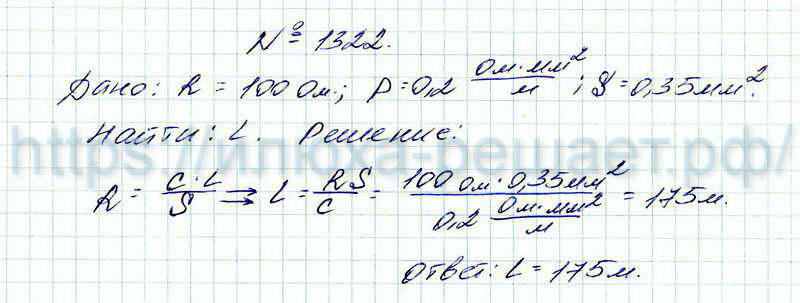 № 1322.
Дано: R = 100 Ом; ρ = 0,2 Ом·мм²/м; S = 0,35 мм².
Найти: L. Решение:
https://илюха-решает.рф/
R = C·L/S → L = RS/C = 100 Ом·0,35мм²/0,2 Ом·мм²/м = 175м.
Ответ: L = 175м.